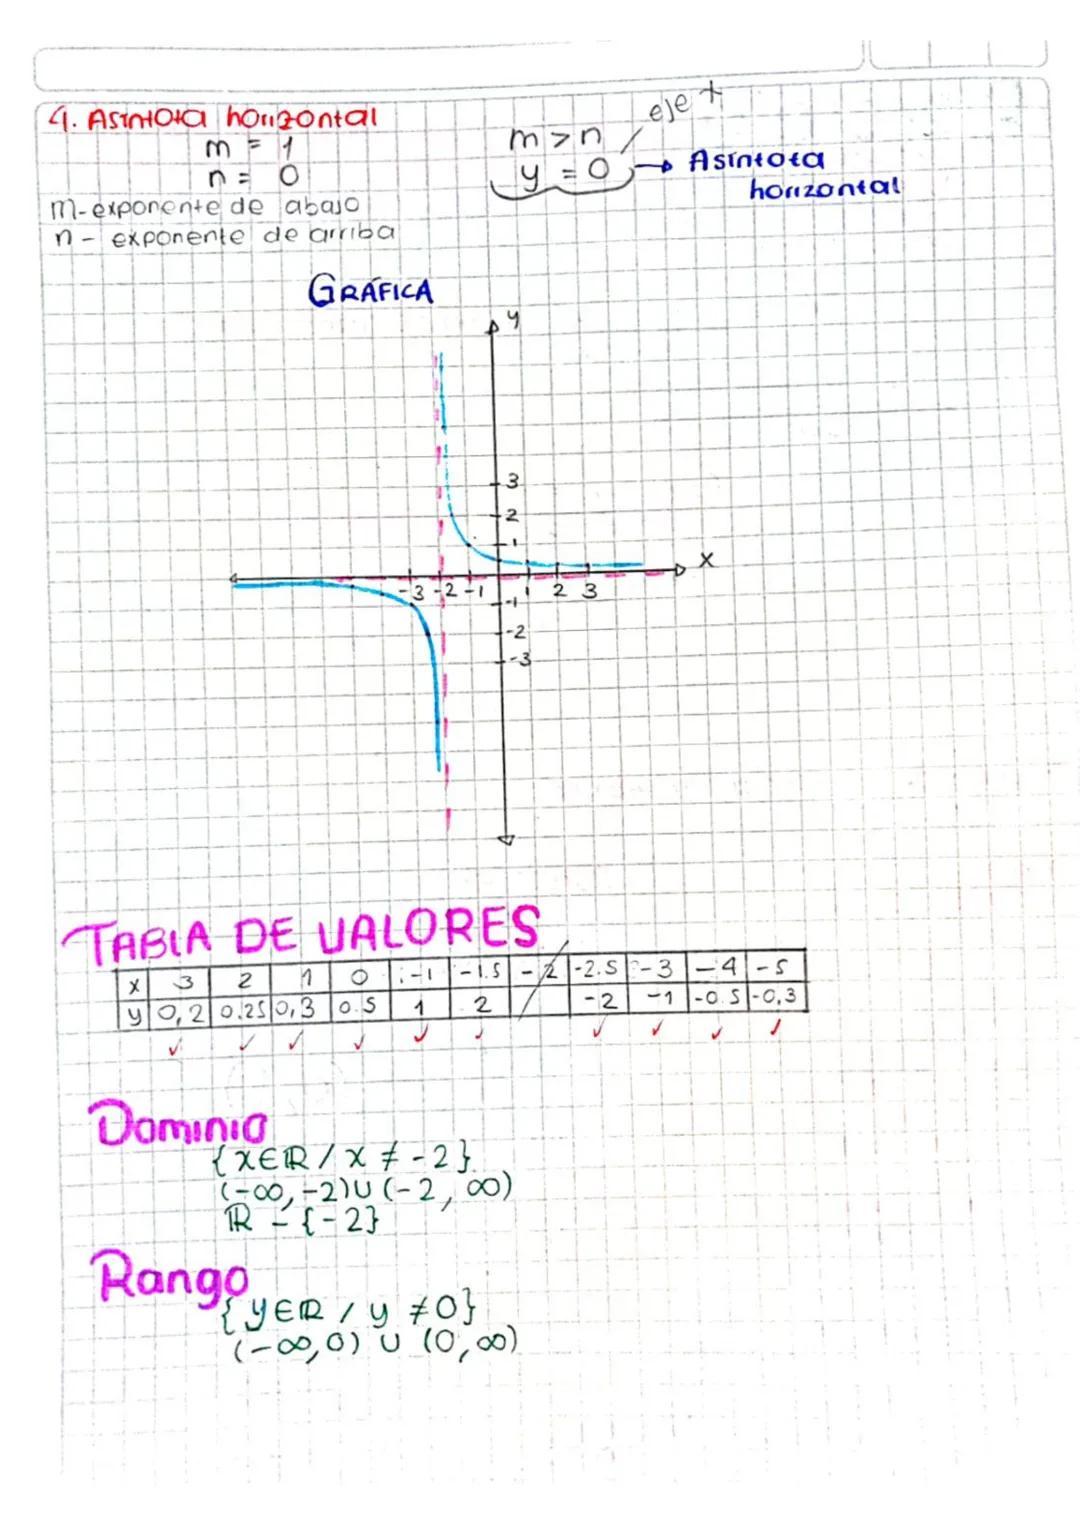 4. Asíntota horizontal
m = 1
n = 0
m-exponente de abajo
n - exponente de arriba
m > n
y = 0
eje x
→ Asíntota
horizontal
GRÁFICA
y
3
2
1
x
-3 -2 -1 1 2 3
-1
-2
-3
TABLA DE VALORES
x 3 2 1 0 -1 -1.5 -2 -2.5 -3 -4 -5
y 0,2 0.25 0,3 0.5 1 2 -2 -1 -0.5 -0,3
Dominio
{x∈ℝ / x ≠ -2}
(-∞, -2) ∪ (-2, ∞)
ℝ - {-2}
Rango
{y∈ℝ / y ≠ 0}
(-∞,0) ∪ (0,∞)